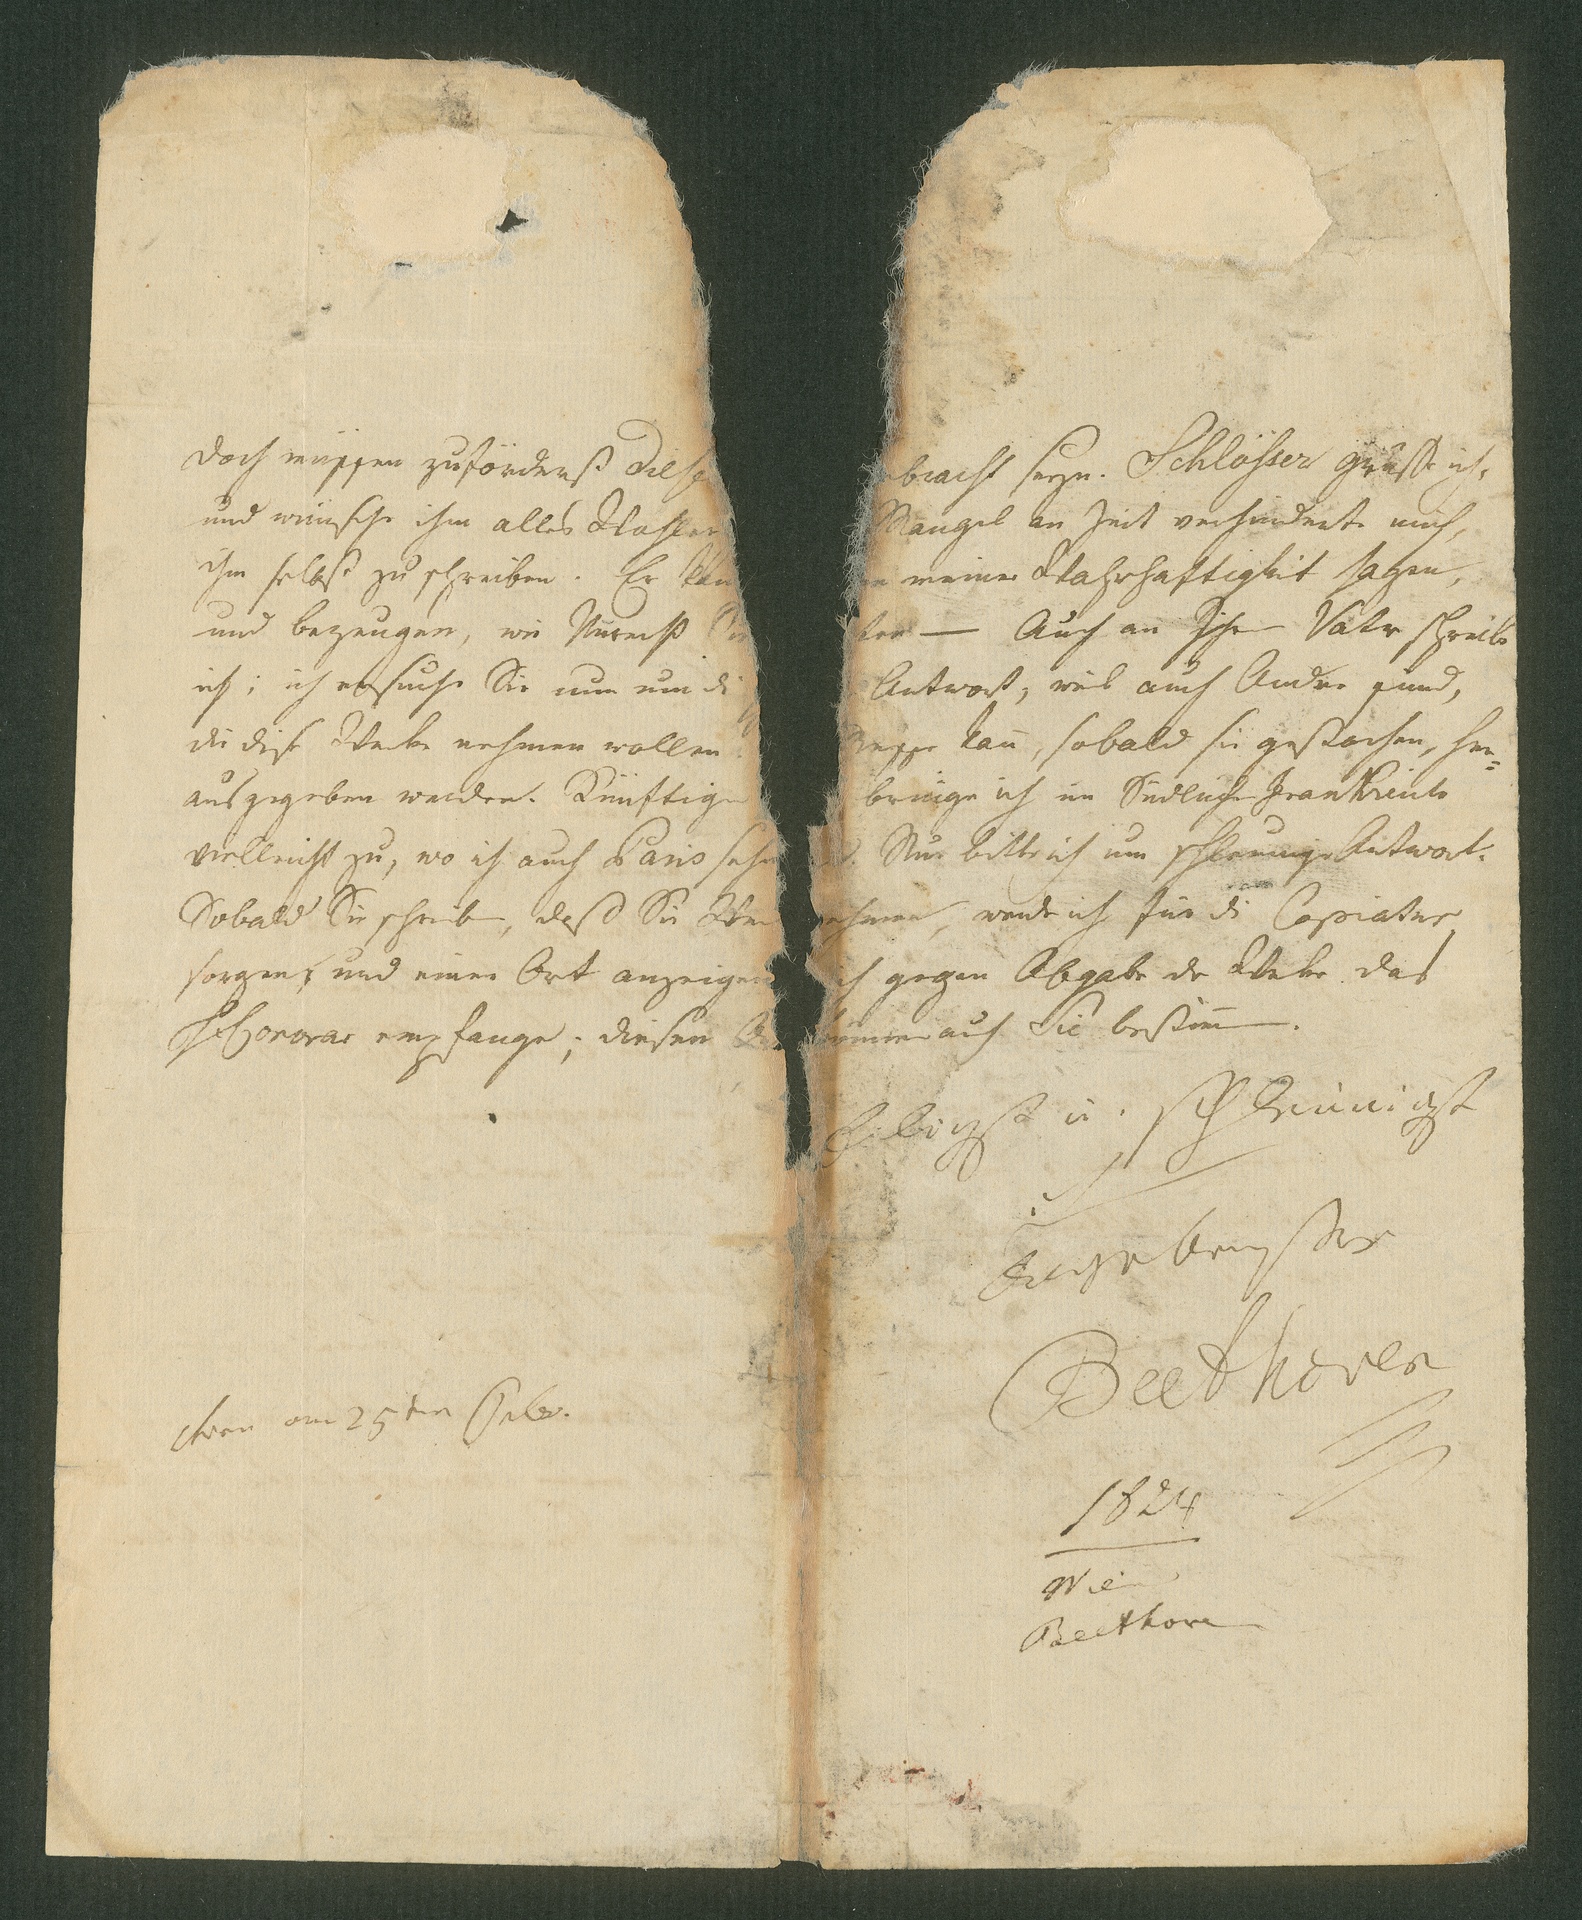 doch müssen zuförderst diese ebracht seyn. Schlösser grüße ich,
und wünsche ihm alles Mangel an Zeit verhinderte mich,
ihm selbst zu schreiben. Er kan meiner Wahrhaftigkeit sagen,
und bezeugen, wie — Auch an Ihren Vater schreibe
ich; ich ersuche Sie nun um di Antwort, weil auch Andre sind,
die diese Werke nehmen wollen Messe kañ, sobald sie gestochen, her=
ausgegeben werden. Künftigen bringe ich im Südlichen Frankreich
vielleicht zu, wo ich auch Paris sehe Nur bitte ich um schleunige Antwort.
Sobald Sie schreiben, daß Sie ehmen, werde ich für die Copiatur
sorgen, und einen Ort anzeigen ich gegen Abgabe der Werke das
Honorar empfange; diesen können auch Sie bestim̅en.
Eiligst u. schleunigst
Ergebenster
Beethoven
Wien am 25ten Febr.
1824
Wien
Beethoven